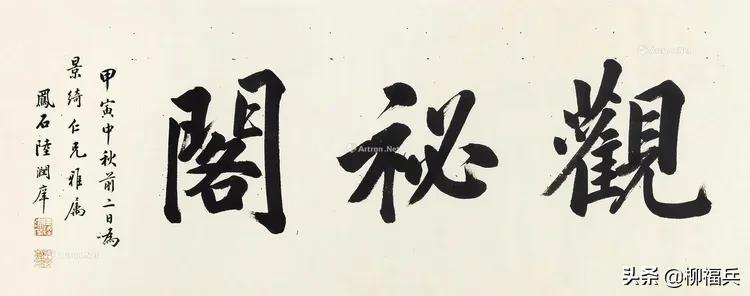 觀祕閣
甲寅中秋前二日為
景綺仁兄雅屬
鳳石陸潤庠
Artron.Net
Artron.Net
头条 @柳福兵